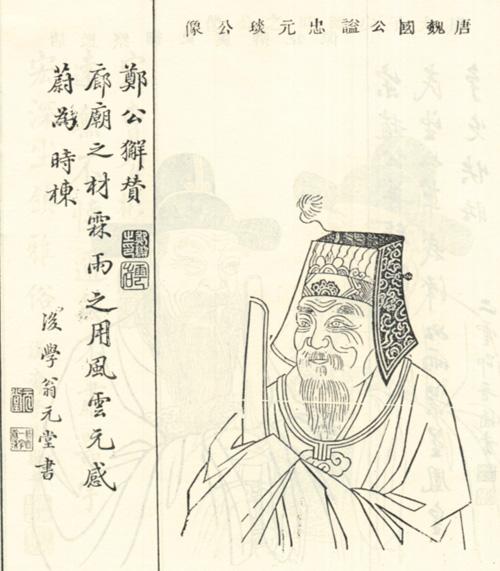 唐魏國公謚忠元琰公像
鄭公獬贊
廊廟之材霖雨之用風雲元感
蔚為時棟
後學翁元堂書